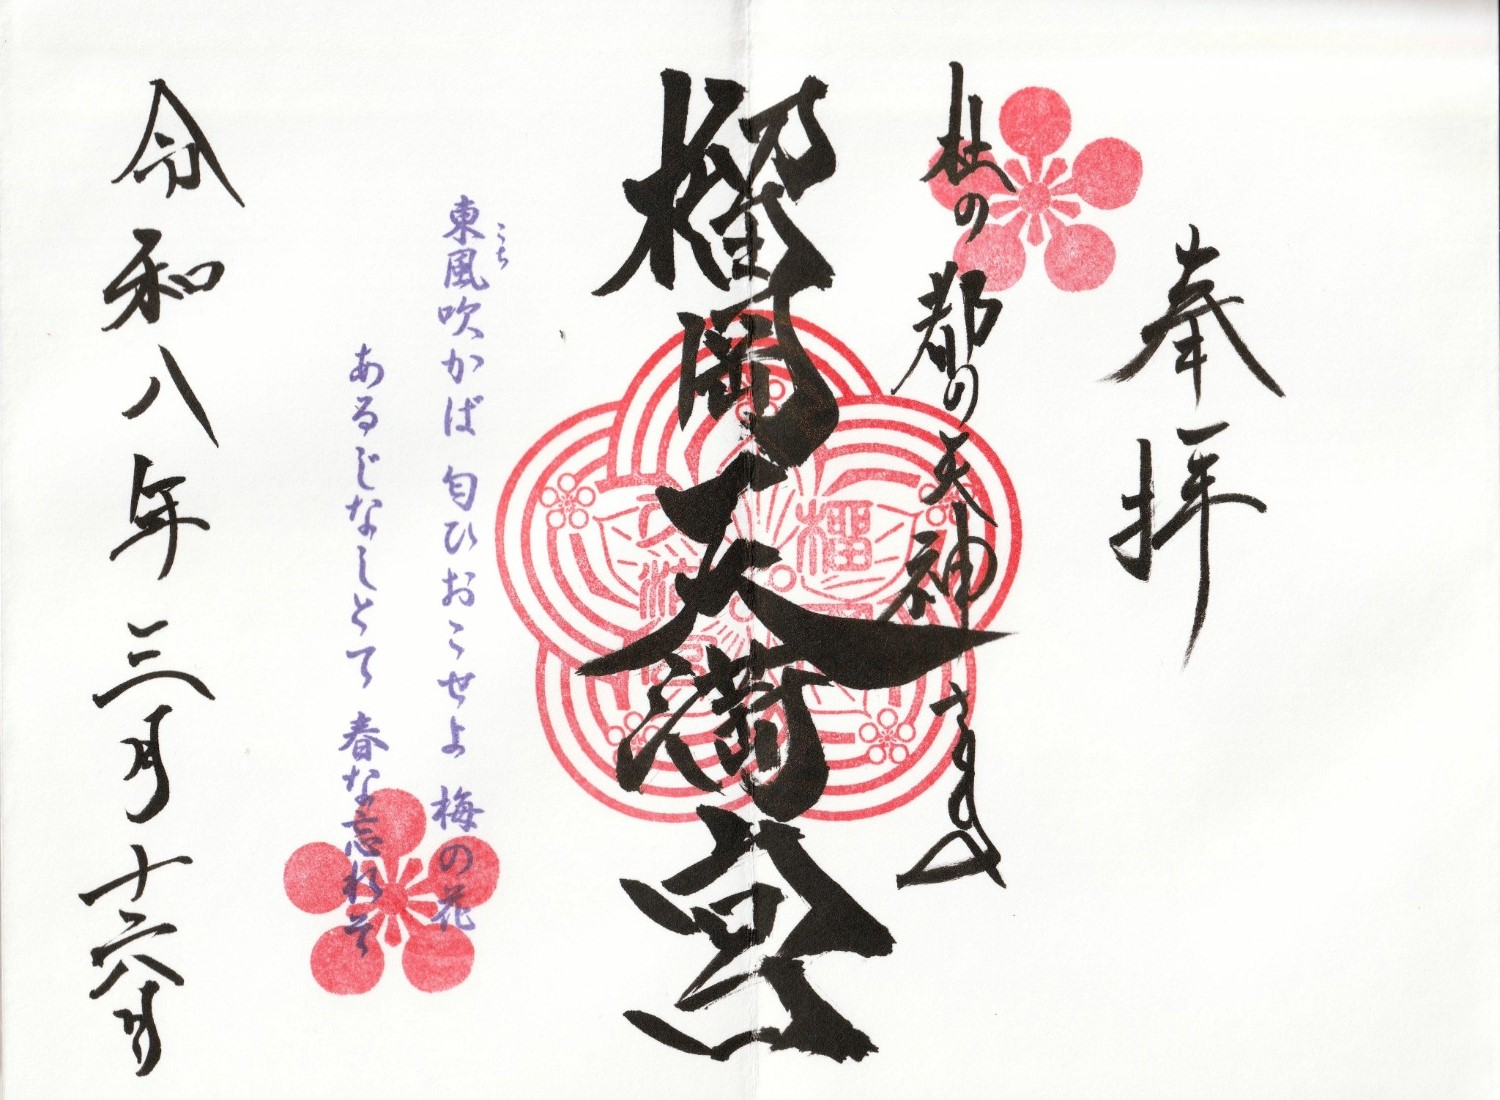 奉拝
杜の都の天神さま
榴岡天満宮
東風吹かば 匂ひおこせよ 梅の花
こち
あるじなしとて 春な忘れそ
令和八年三月十六日